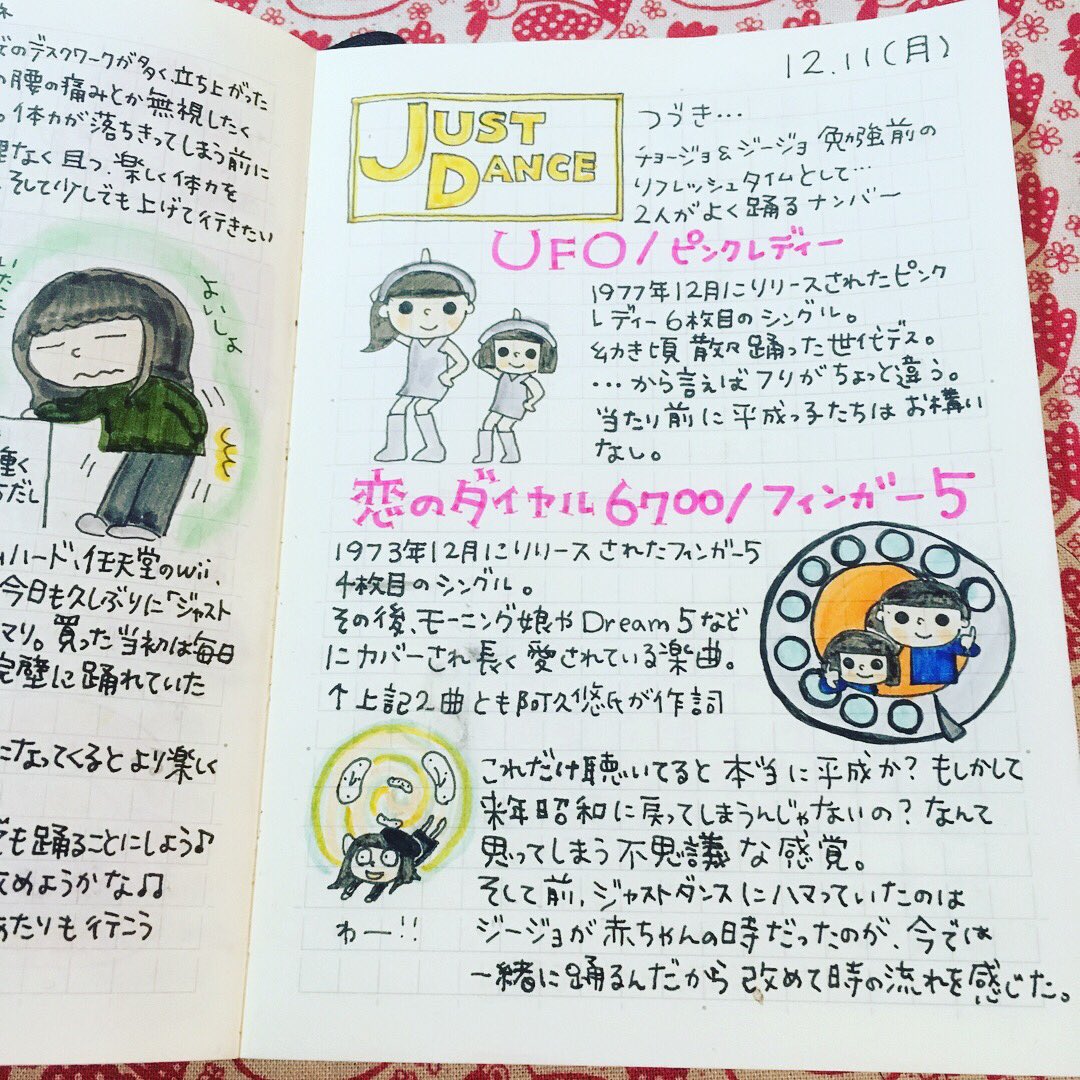 ネ
のデスクワークが多く、立ち上がった
の腰の痛みとか無視したく
。体力が落ちきってしまう前に
なく且つ、楽しく体力を
そして少しでも上げて行きたい
よいしょ
ハード、任天堂のwii、
今日も久しぶりに「ジャスト
マリ。買った当初は毎日
完璧に踊れていた
になってくるとより楽しく
も踊ることにしよう♪
めようかな♫
あたりも行こう
12.11(月)
JUST
DANCE
つづき…
チョージョ&ジージョ 勉強前の
リフレッシュタイムとして…
2人がよく踊るナンバー
UFO/ピンクレディー
1977年12月にリリースされたピンク
レディー6枚目のシングル。
幼き頃 散々踊った世代デス。
…から言えばフリがちょっと違う。
当たり前に平成っ子たちはお構い
なし。
恋のダイヤル6700/フィンガー5
1973年12月にリリースされたフィンガー5
4枚目のシングル。
その後、モーニング娘やDream5など
にカバーされ長く愛されている楽曲。
↑上記2曲とも阿久悠氏が作詞
これだけ聴いてると本当に平成か?もしかして
来年昭和に戻ってしまうんじゃないの?なんて
思ってしまう不思議な感覚。
そして前、ジャストダンスにハマっていたのは
ジージョが赤ちゃんの時だったのが、今では
一緒に踊るんだから改めて時の流れを感じた。
わー!!